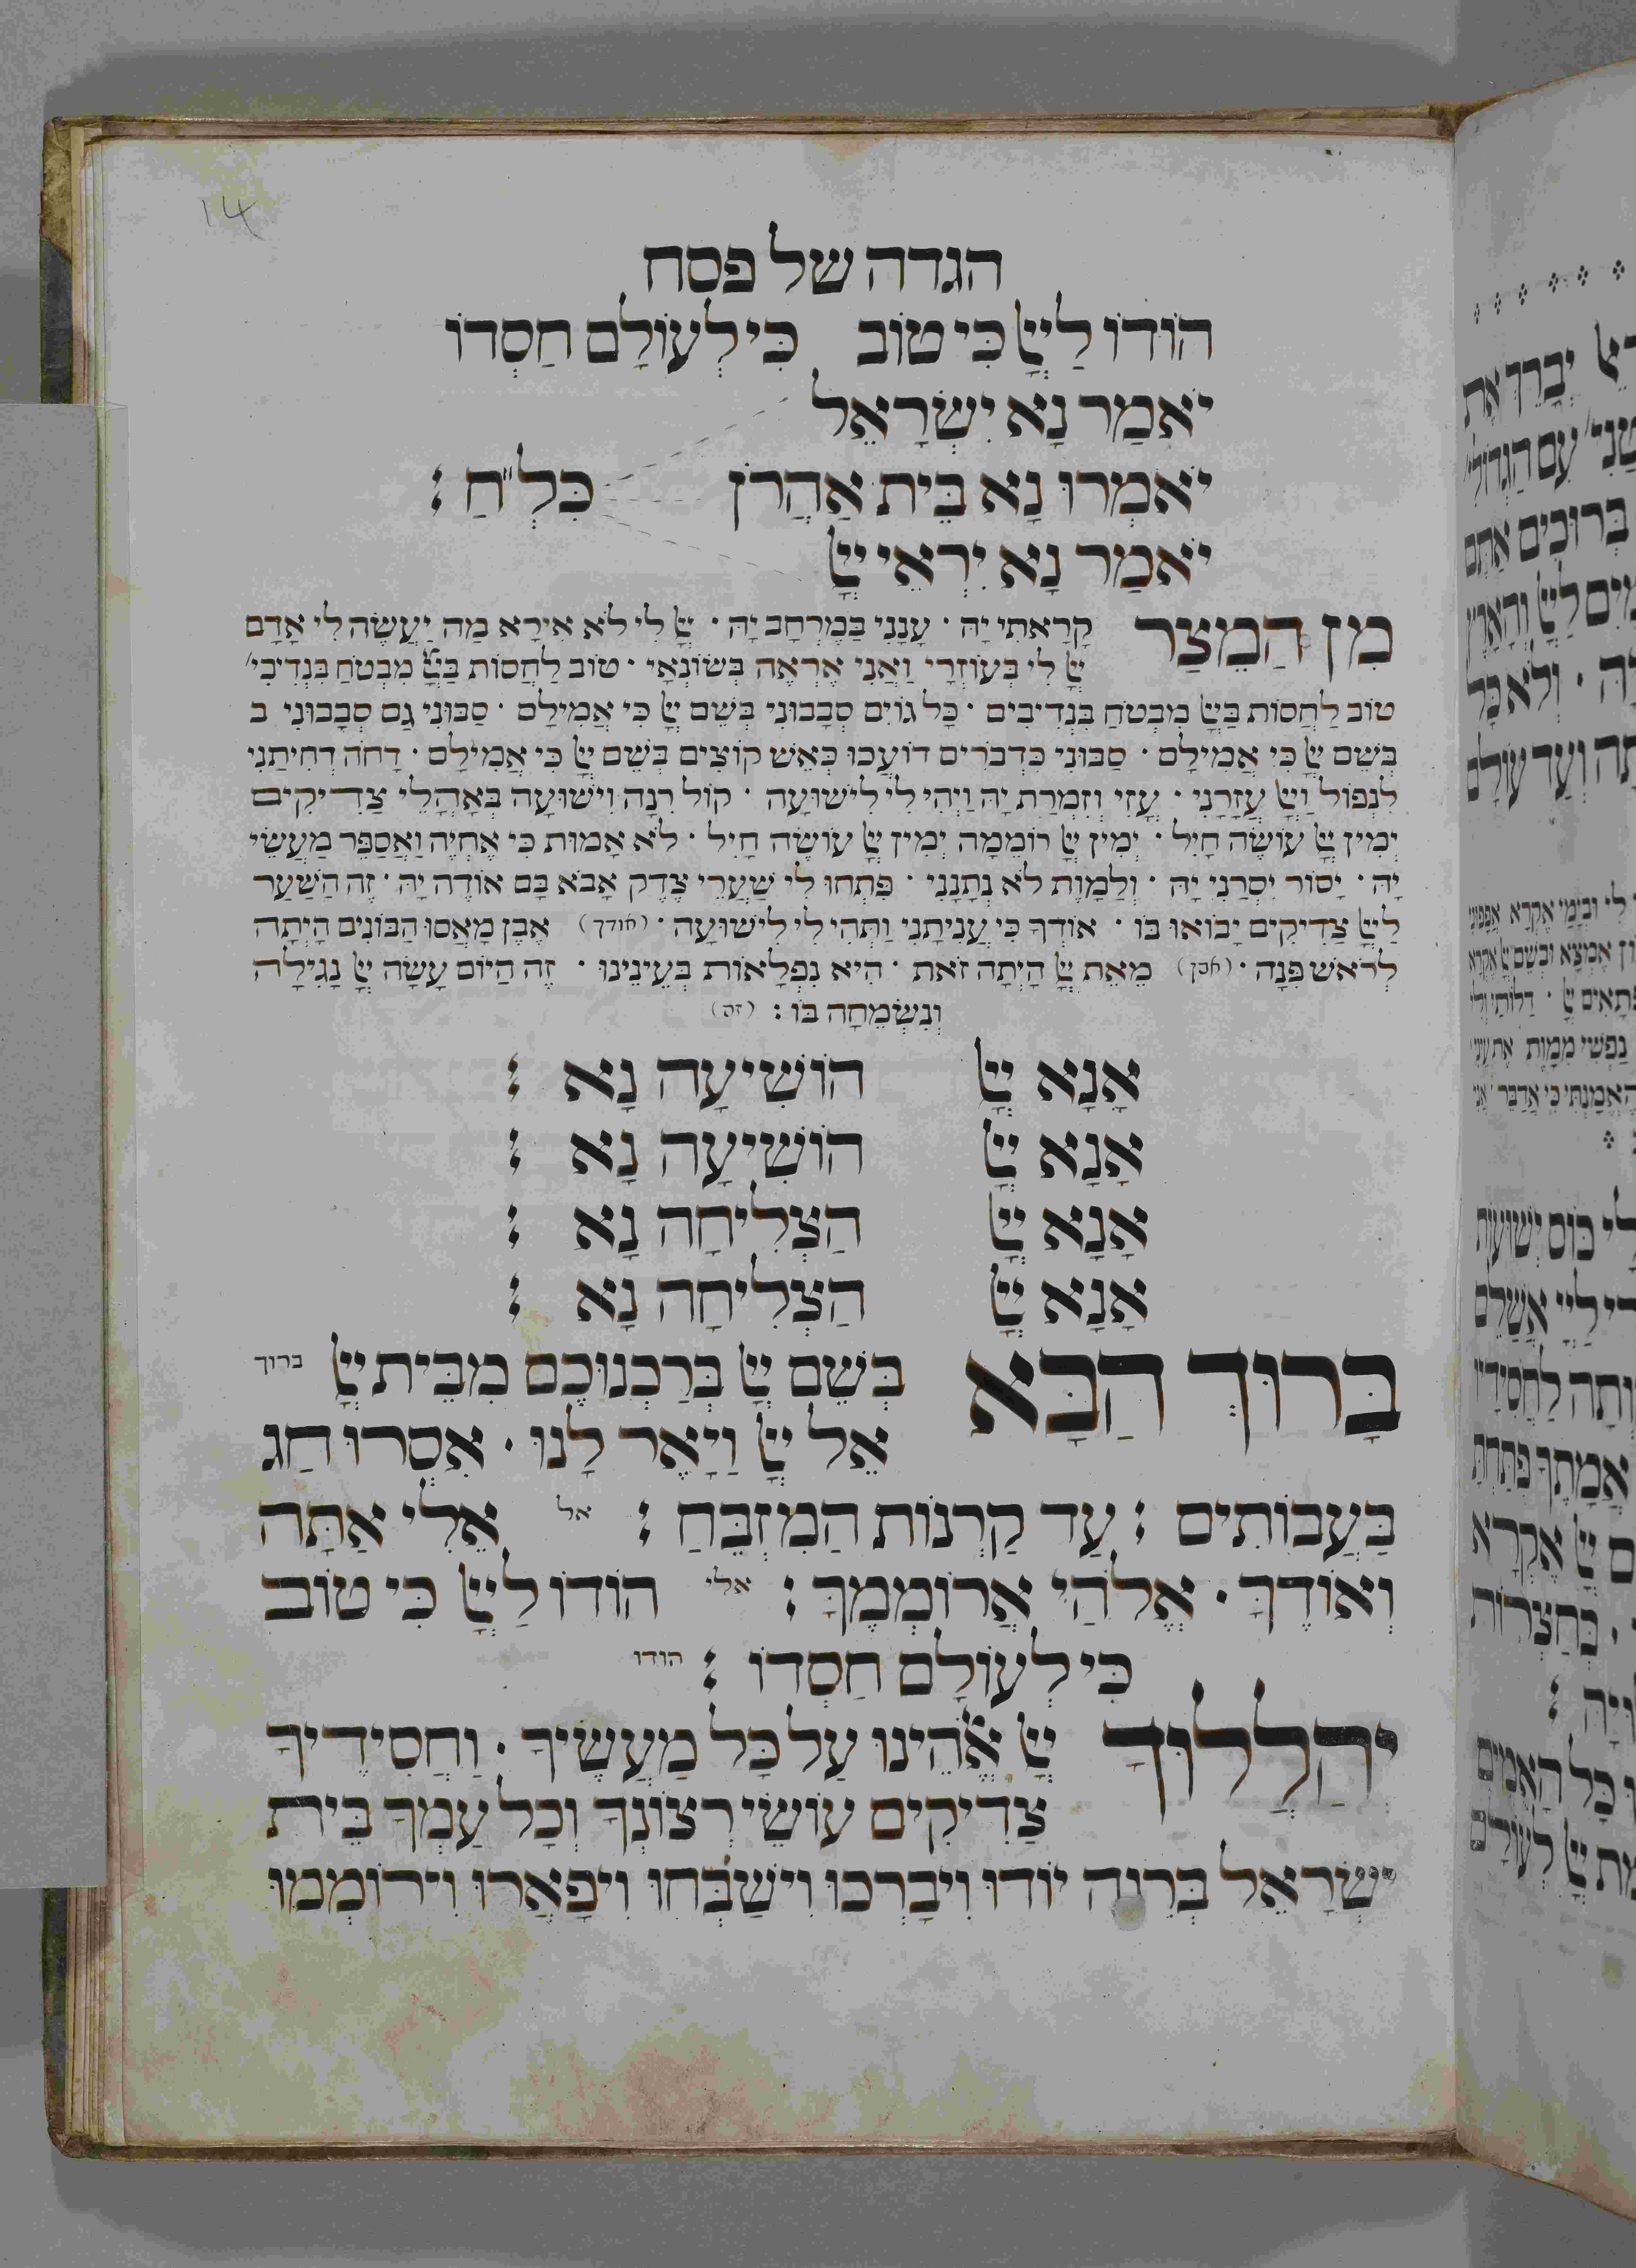 14
הגדה של פסח
הוֹדוֹ לַיְיָ כִּי טוֹב כִּי לְעוֹלָם חַסְדוֹ
יֹאמַר נָא יִשְׂרָאֵל
יֹאמְרוּ נָא בֵּית אַהֲרֹן כִּלְ"חַ :
יֹאמַר נָא יִרְאֵי יְיָ
מִן הַמֵצַר קָרָאתִי יָהּ · עָנָנִי בַמֶרְחַב יָהּ · יְיָ לִי לֹא אִירָא מַה יַעֲשֶׂה לִי אָדָם
יְיָ לִי בְּעוֹזְרָי וַאֲנִי אֶרְאֶה בְּשׂוֹנְאָי · טוֹב לַחֲסוֹת בַּיְיָ מִבְטֹחַ בִּנְדִיבִי'
טוֹב לַחֲסוֹת בַּיְיָ מִבְטֹחַ בִּנְדִיבִים · כָּל גוֹיִם סְבָבוּנִי בְּשֵׁם יְיָ כִּי אֲמִילָם · סַבּוּנִי גַם סְבָבוּנִי ב
בְּשֵׁם יְיָ כִּי אֲמִילָם · סַבּוּנִי כִּדְבֹרִים דוֹעֲכוּ כְּאֵשׁ קוֹצִים בְּשֵׁם יְיָ כִּי אֲמִילָם · דָחֹה דְחִיתַנִי
לִנְפּוֹל וַיְיָ עֲזָרָנִי · עָזִּי וְזִמְרַת יָהּ וַיְהִי לִי לִישׁוּעָה · קוֹל רִנָה וִישׁוּעָה בְּאָהֳלֵי צַדִיקִים
יְמִין יְיָ עוֹשָׂה חָיִל · יְמִין יְיָ רוֹמֵמָה יְמִין יְיָ עוֹשָׂה חָיִל · לֹא אָמוּת כִּי אֶחְיֶה וַאֲסַפֵּר מַעֲשֵׂי
יָהּ · יַסוֹר יִסְרַנִי יָהּ · וְלַמָוֶת לֹא נְתָנָנִי · פִּתְחוּ לִי שַׁעֲרֵי צֶדֶק אָבֹא בָם אוֹדֶה יָהּ · זֶה הַשַׁעַר
לַיְיָ צַדִיקִים יָבוֹאוּ בוֹ · אוֹדְךָ כִּי עֲנִיתָנִי וַתְּהִי לִי לִישׁוּעָה · (אודך) אֶבֶן מָאֲסוּ הַבּוֹנִים הָיְתָה
לְרֹאשׁ פִּנָה · (אבן) מֵאֵת יְיָ הָיְתָה זֹאת · הִיא נִפְלָאוֹת בְּעֵינֵינוּ · זֶה הַיוֹם עָשָׂה יְיָ נָגִילָה
וְנִשְׂמְחָה בוֹ : (זה)
אָנָא יְיָ הוֹשִׁיעָה נָא :
אָנָא יְיָ הוֹשִׁיעָה נָא :
אָנָא יְיָ הַצְלִיחָה נָא :
אָנָא יְיָ הַצְלִיחָה נָא :
בָּרוּךְ הַבָּא בְּשֵׁם יְיָ בֵּרַכְנוּכֶם מִבֵּית יְיָ ברוך
אֵל יְיָ וַיָאֶר לָנוּ · אִסְרוּ חַג
בַּעֲבוֹתִים : עַד קַרְנוֹת הַמִזְבֵּחַ : אל אֵלִי אַתָּה
וְאוֹדֶךָּ · אֱלֹהַי אֲרוֹמְמֶךָּ : אלי הוֹדוֹ לַיְיָ כִּי טוֹב
כִּי לְעוֹלָם חַסְדוֹ : הודו
יְהַלֲלוּךָ יְיָ אֱהֵינוּ עַל כָּל מַעֲשֶׂיךָ · וַחֲסִידֶיךָ
צַדִיקִים עוֹשֵׂי רְצוֹנֶךָ וְכָל עַמְךָ בֵּית
יִשְׂרָאֵל בְּרִנָה יוֹדוּ וִיבָרְכוּ וִישַׁבְּחוּ וִיפָאֲרוּ וִירוֹמְמוּ